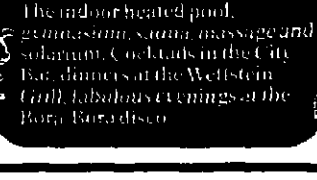 The indoor heated pool,
gymnasium, sauna, massage and
solarium. Cocktails in the City
Bar, dinners at the Wettstein
Grill, fabulous evenings at the
Bora Bora disco